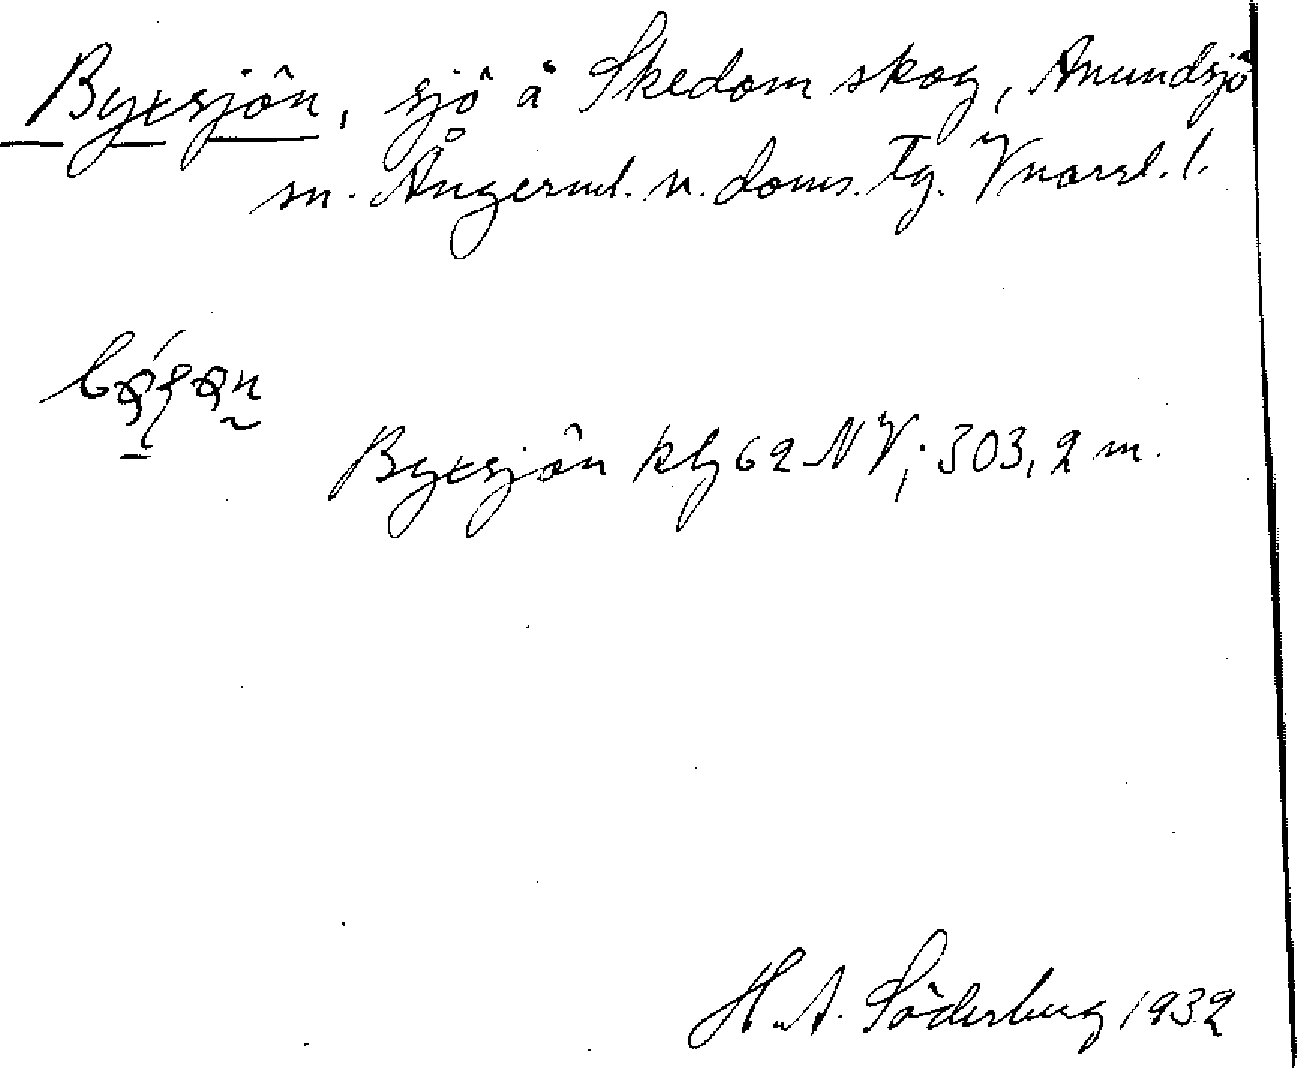 Byxsjön, sjö å Skedom skog, Anundsjö
sn. Ångerml. n. doms. tg. Vnorrl. l.
Byxsjön kbg 62 NV; 303,2 m.
H. A. Söderberg 1932